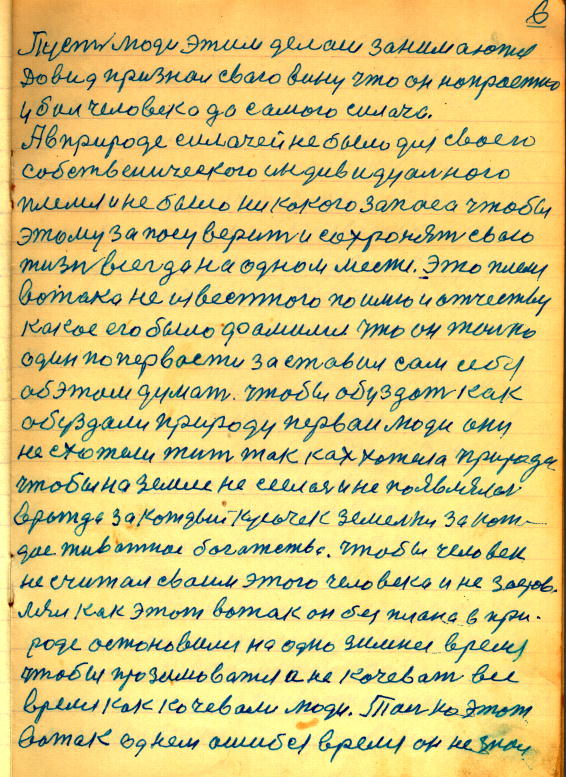 6
Пусть люди этим делаш занимаются
Довид признал сваго вину что он нопростно
убил человека да самого силача.
А вприроде силачей не было для своего
собственического индивидуального
племя и не было никокого запоса чтобы
этому запосу верит и сохронят сваю
жизн всегда на одном мести. Это племя
вотака не известного по имю и отчеству
какое его было фамилия что он толко
один по первости заставил сам себя
об этом думат. чтобы обуздат как
обуздали природу первыи люди они
не схотели жит так как хотела природа
чтобы на земле не сеелая и не появлялас
вражда за кождый кусочек земелки за кож-
дое животное богатства. чтобы человек
не считал своим этого человека и не застов-
лял как этот вотак он без плана в при-
роде остоновили на одно зимнея время
чтобы прозимоватя и не кочеват все
время как кочевали люди. Толко этот
вотак однем ошибся время он не знал